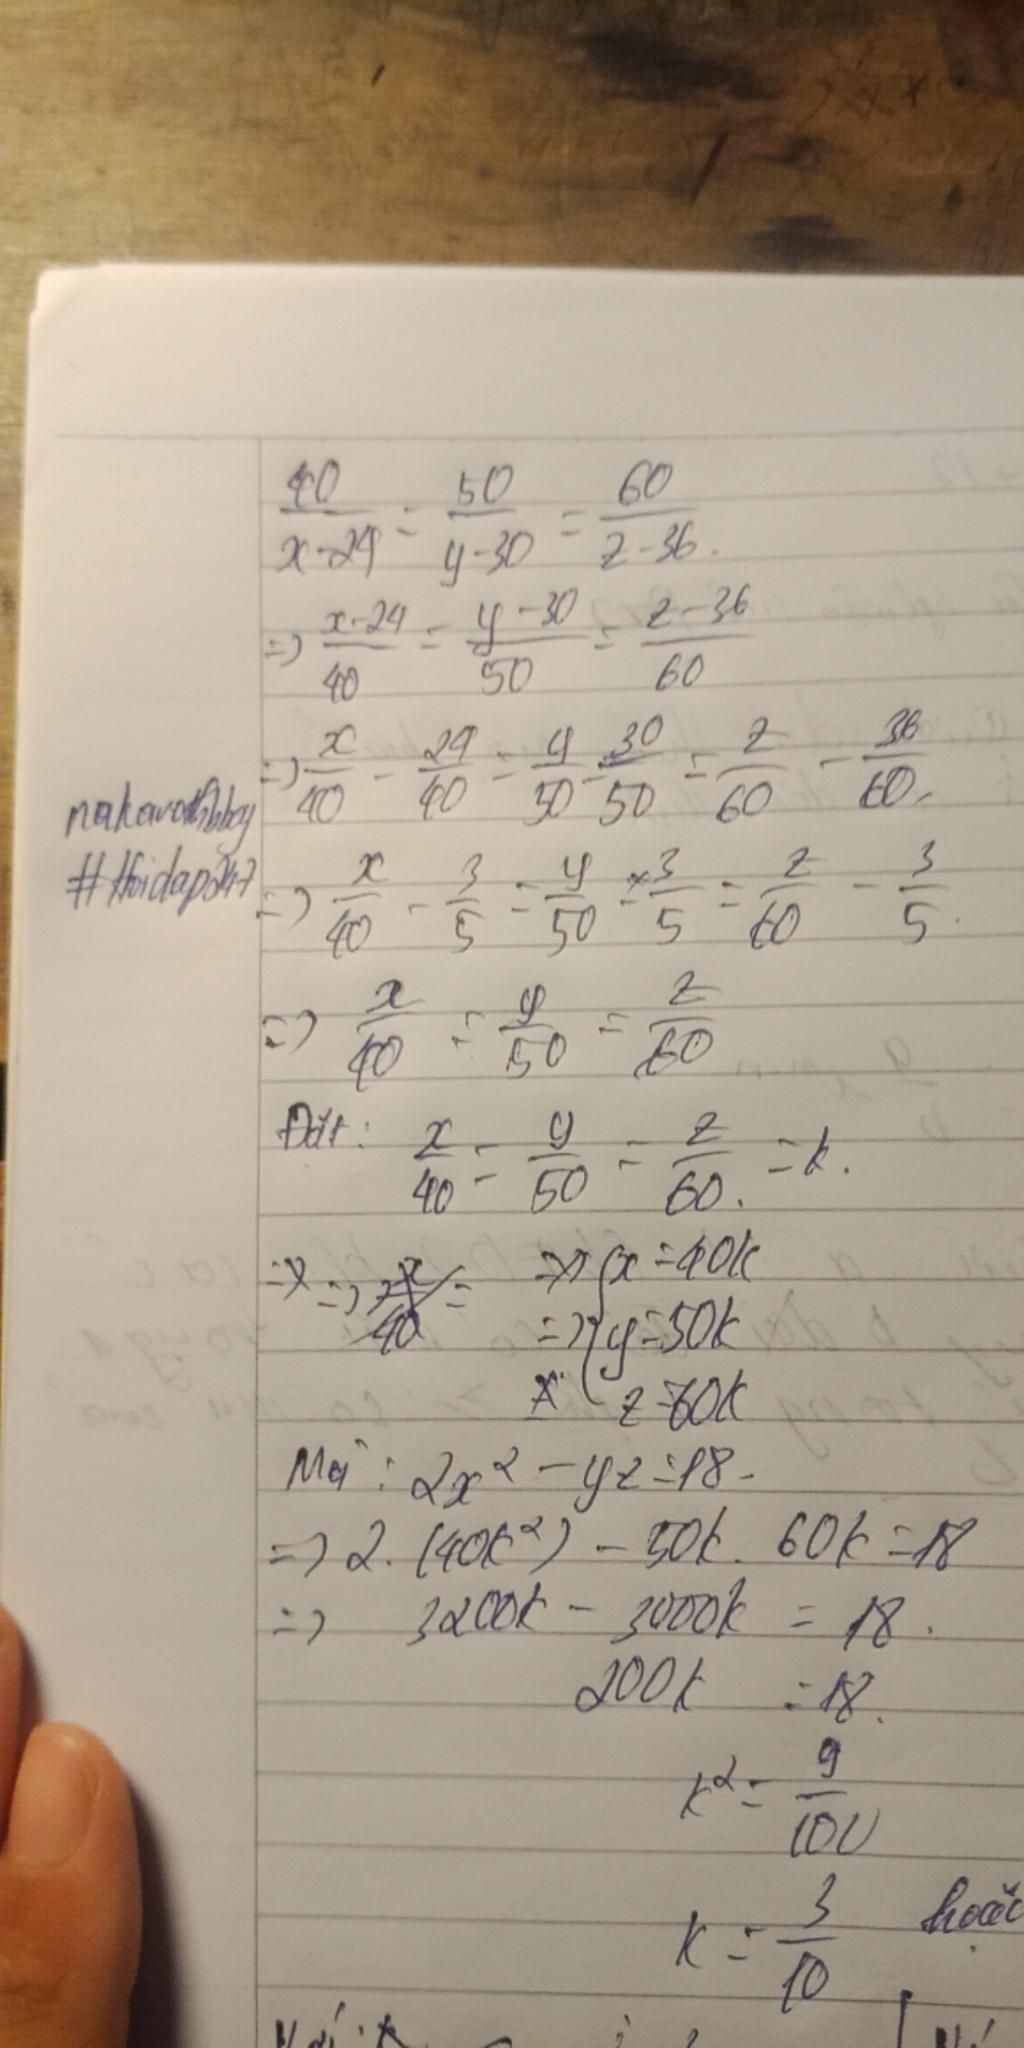 40/(x-24) = 50/(y-30) = 60/(z-36).
=> (x-24)/40 = (y-30)/50 = (z-36)/60
=> x/40 - 24/40 = y/50 - 30/50 = z/60 - 36/60.
#Hoidap247
=> x/40 - 3/5 = y/50 - 3/5 = z/60 - 3/5.
=> x/40 = y/50 = z/60
Đặt: x/40 = y/50 = z/60. = k.
=> { x = 40k
=> { y = 50k
{ z = 60k
Mà: 2x² - yz = 18.
=> 2. (40k²) - 50k. 60k = 18
=> 3200k - 3000k = 18.
200k = 18.
k² = 9/100
k = 3/10 hoặc